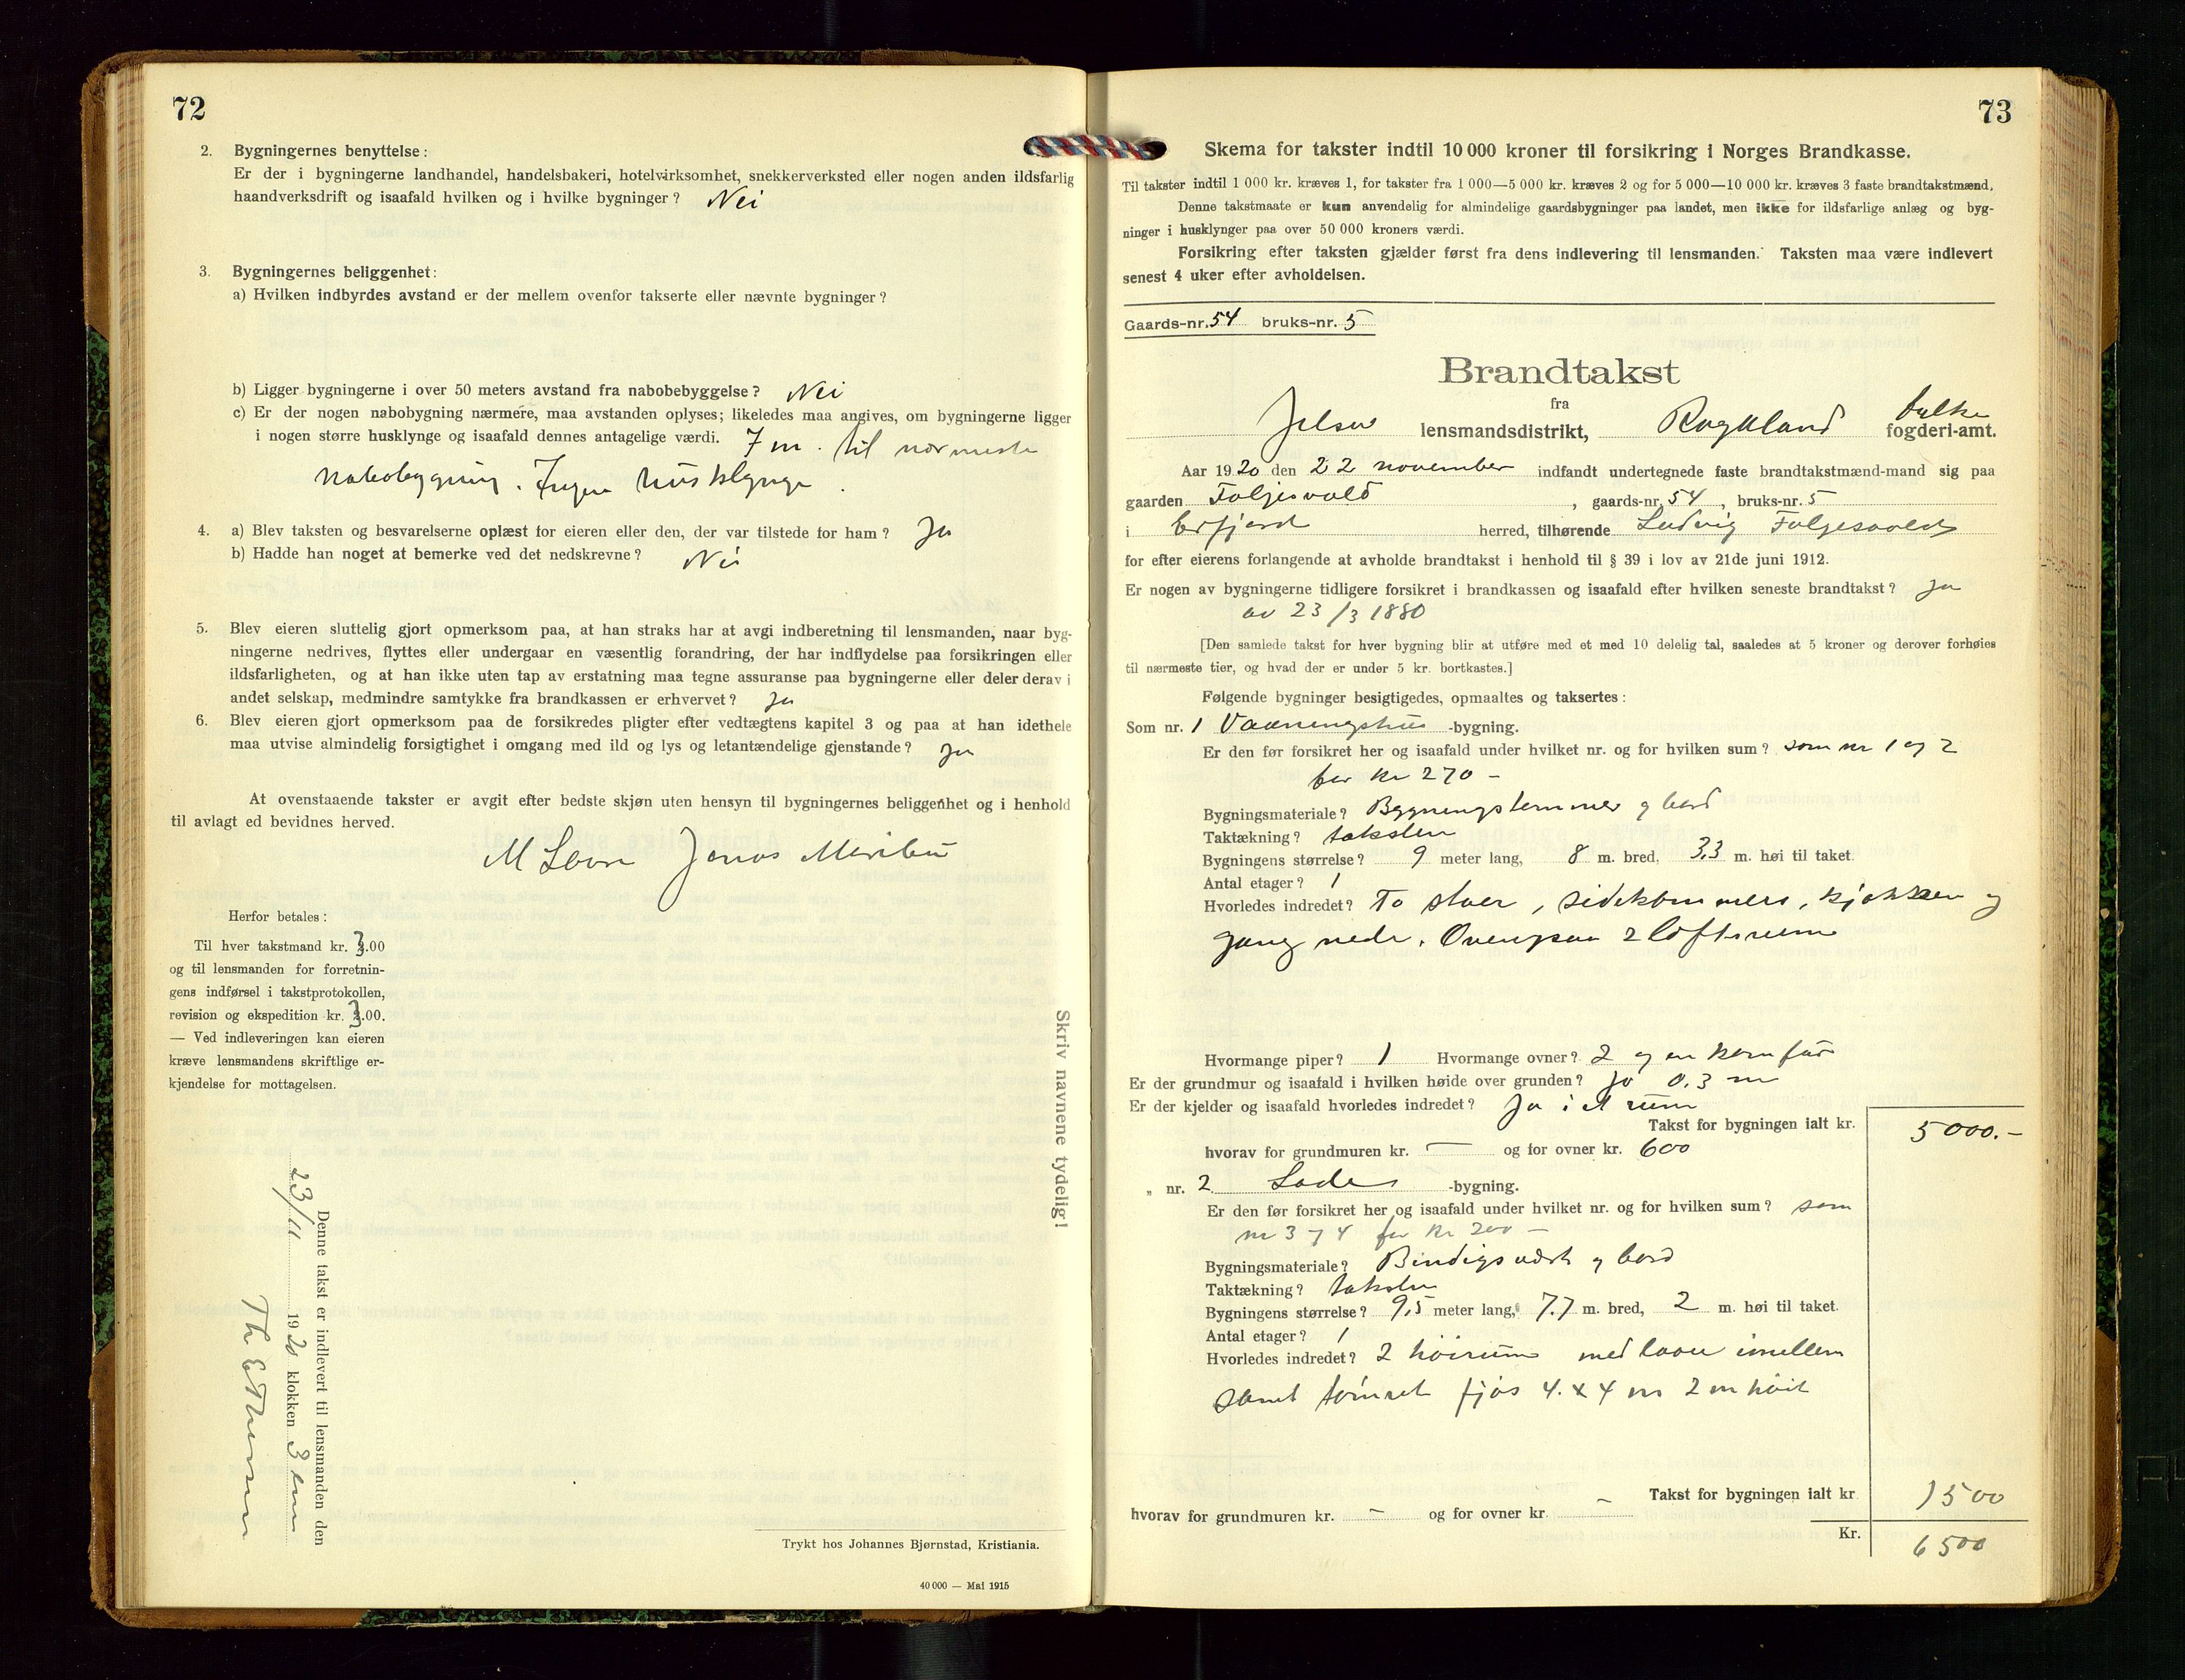 72
2. Bygningernes benyttelse:
Er der i bygningerne landhandel, handelsbakeri, hotelvirksomhet, snekkerverksted eller nogen anden ildsfarlig
haandverksdrift og isaafald hvilken og i hvilke bygninger? Nei
3. Bygningernes beliggenhet:
a) Hvilken indbyrdes avstand er der mellem ovenfor takserte eller nævnte bygninger?
b) Ligger bygningerne i over 50 meters avstand fra nabobebyggelse? Nei
c) Er der nogen nabobygning nærmere, maa avstanden oplyses; likeledes maa angives, om bygningerne ligger
i nogen større husklynge og isaafald dennes antagelige værdi. 7 m. til nærmeste
nabobygning. Ingen husklynge.
4. a) Blev taksten og besvarelserne oplæst for eieren eller den, der var tilstede for ham? Ja
b) Hadde han noget at bemerke ved det nedskrevne? Nei
5. Blev eieren sluttelig gjort opmerksom paa, at han straks har at avgi indberetning til lensmanden, naar byg-
ningerne nedrives, flyttes eller undergaar en væsentlig forandring, der har indflydelse paa forsikringen eller
ildsfarligheten, og at han ikke uten tap av erstatning maa tegne assuranse paa bygningerne eller deler derav i
andet selskap, medmindre samtykke fra brandkassen er erhvervet? Ja
6. Blev eieren gjort opmerksom paa de forsikredes pligter efter vedtægtens kapitel 3 og paa at han idethele
maa utvise almindelig forsigtighet i omgang med ild og lys og letantændelige gjenstande? Ja
At ovenstaaende takster er avgit efter bedste skjøn uten hensyn til bygningernes beliggenhet og i henhold
til avlagt ed bevidnes herved.
M Jonas
Herfor betales:
Til hver takstmand kr. 3.00
og til lensmanden for forretnin-
gens indførsel i takstprotokollen,
revision og ekspedition kr. 3.00.
— Ved indleveringen kan eieren
kræve lensmandens skriftlige er-
kjendelse for mottagelsen.
Skriv navnene tydelig!
Denne takst er indlevert til lensmanden den
23/11 1920 klokken 3 em
Trykt hos Johannes Bjørnstad, Kristiania.
40 000 — Mai 1915
73
Skema for takster indtil 10 000 kroner til forsikring i Norges Brandkasse.
Til takster indtil 1 000 kr. kræves 1, for takster fra 1 000—5 000 kr. kræves 2 og for 5 000—10 000 kr. kræves 3 faste brandtakstmænd,
Denne takstmaate er kun anvendelig for almindelige gaardsbygninger paa landet, men ikke for ildsfarlige anlæg og byg-
ninger i husklynger paa over 50 000 kroners værdi.
Forsikring efter taksten gjælder først fra dens indlevering til lensmanden. Taksten maa være indlevert
senest 4 uker efter avholdelsen.
Gaards-nr. 54 bruks-nr. 5
Brandtakst
fra
Jelsa lensmandsdistrikt, Rogaland fylke
fogderi-amt.
Aar 1920 den 22 november indfandt undertegnede faste brandtakstmænd-mand sig paa
gaarden Foljesvold, gaards-nr. 54, bruks-nr. 5
i Erfjord herred, tilhørende Ludvig Foljesvold
for efter eierens forlangende at avholde brandtakst i henhold til § 39 i lov av 21de juni 1912.
Er nogen av bygningerne tidligere forsikret i brandkassen og isaafald efter hvilken seneste brandtakst? Ja
av 23/3 1880
[Den samlede takst for hver bygning blir at utføre med et med 10 delelig tal, saaledes at 5 kroner og derover forhøies
til nærmeste tier, og hvad der er under 5 kr. bortkastes.]
Følgende bygninger besigtigedes, opmaaltes og taksertes:
Som nr. 1 Vaaningshus -bygning.
Er den før forsikret her og isaafald under hvilket nr. og for hvilken sum? som nr 1 og 2
for kr 270 –
Bygningsmateriale? Bygningstømmer og bord
Taktækning? taksten
Bygningens størrelse? 9 meter lang, 8 m. bred, 3,3 m. høi til taket.
Antal etager? 1
Hvorledes indredet? To stuer, sidekammers, kjøkken og
gang nede. Ovenpaa 2 loftsrum
Hvormange piper? 1 Hvormange ovner? 2 og en komfur
Er der grundmur og isaafald i hvilken høide over grunden? Ja 0.3 m
Er der kjelder og isaafald hvorledes indredet? Ja i et rum
Takst for bygningen ialt kr. 5000.–
hvorav for grundmuren kr. — og for ovner kr. 600
„ nr. 2 Lade -bygning.
Er den før forsikret her og isaafald under hvilket nr. og for hvilken sum? som
nr 3 og 4 for kr 200 –
Bygningsmateriale? Bindigsverk og bord
Taktækning? taksten
Bygningens størrelse? 9,5 meter lang, 7.7 m. bred, 2 m. høi til taket.
Antal etager? 1
Hvorledes indredet? 2 høirum med laave imellem
samt tømret fjøs 4 x 4 m 2 m høit
Takst for bygningen ialt kr 1500
hvorav for grundmuren kr. – og for ovner kr. –
Kr. 6500